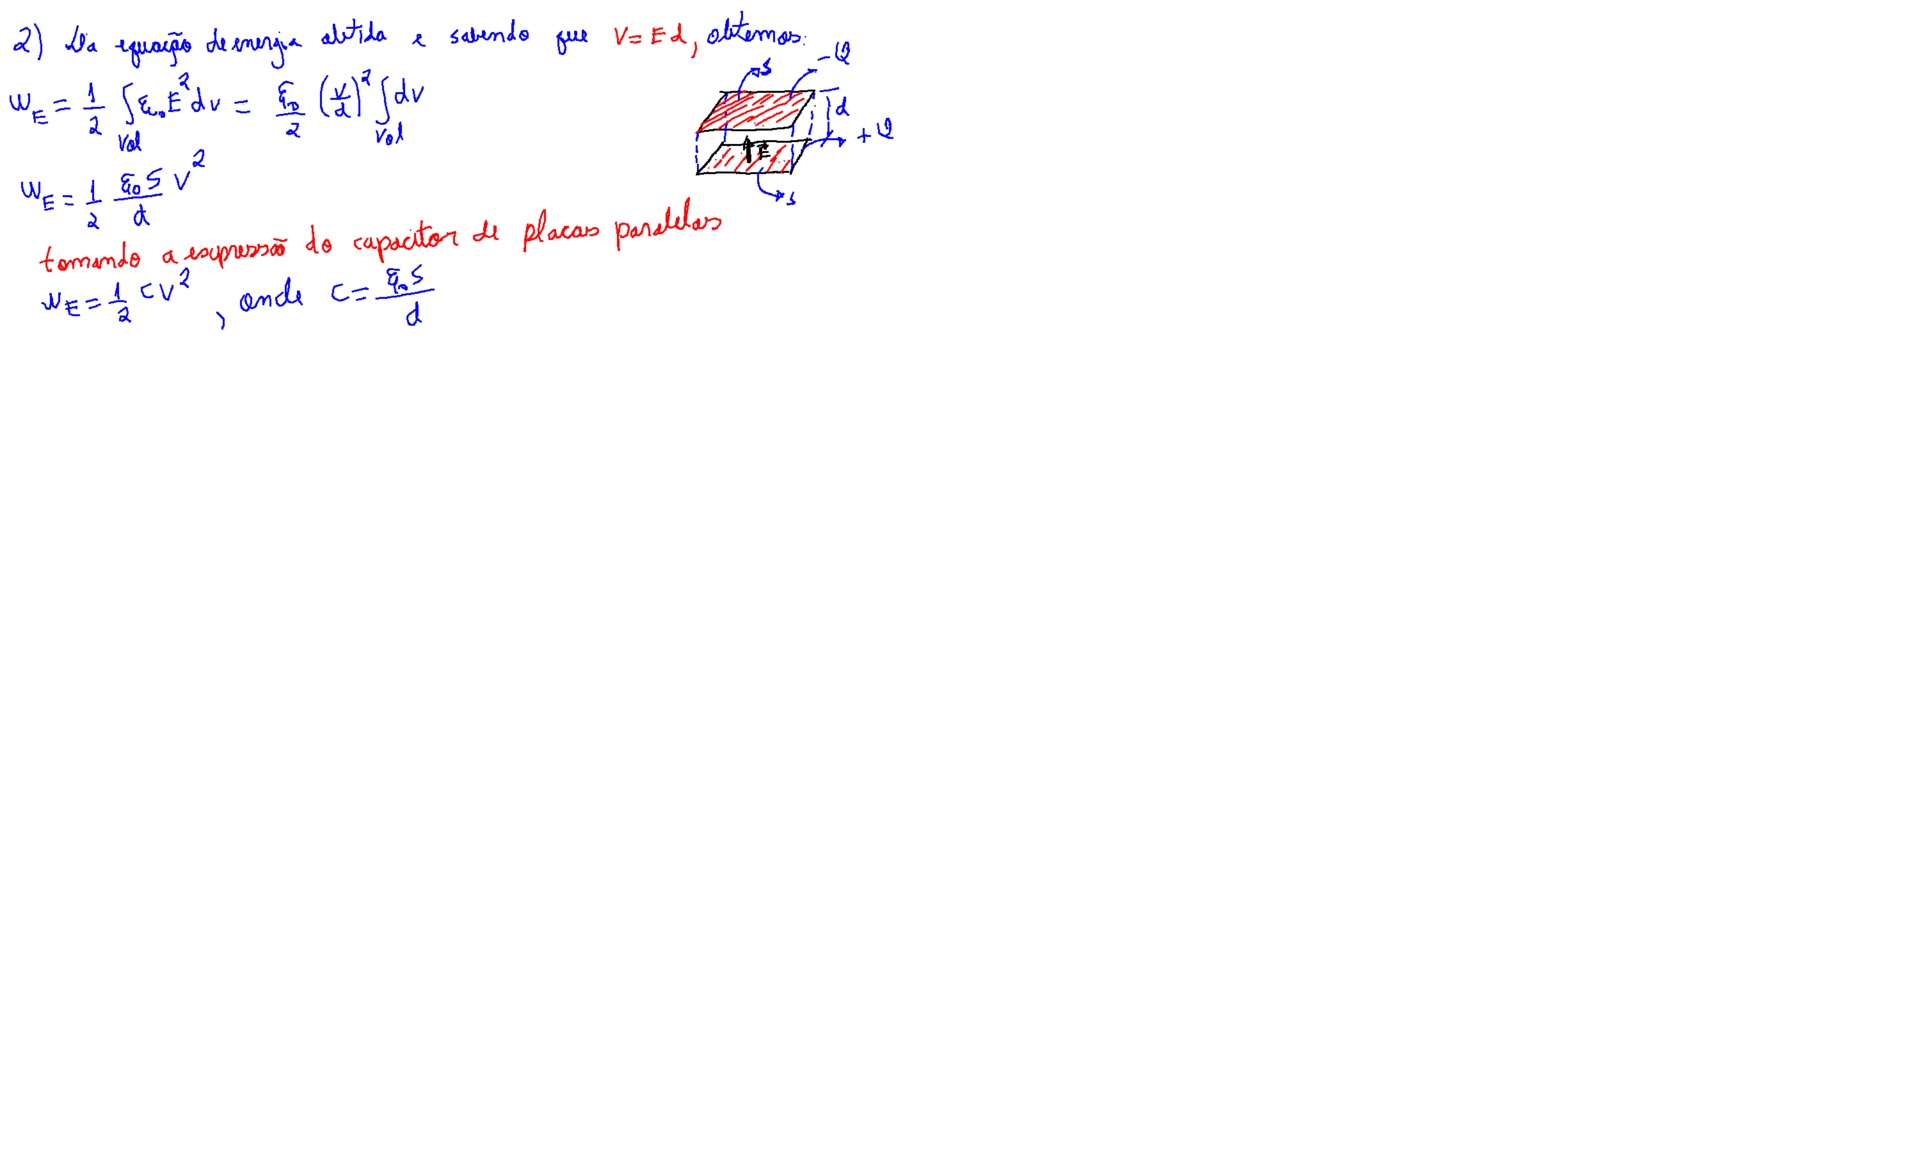 2) Da equação de energia obtida e sabendo que V = Ed, obtemos:
W_E = 1/2 ∫_Vol ε₀E² dv = ε₀/2 (V/d)² ∫_Vol dv
W_E = 1/2 ε₀S/d V²
tomando a expressão do capacitor de placas paralelas
W_E = 1/2 CV² , onde C = ε₀S/d
S
-Q
d
+Q
E
S